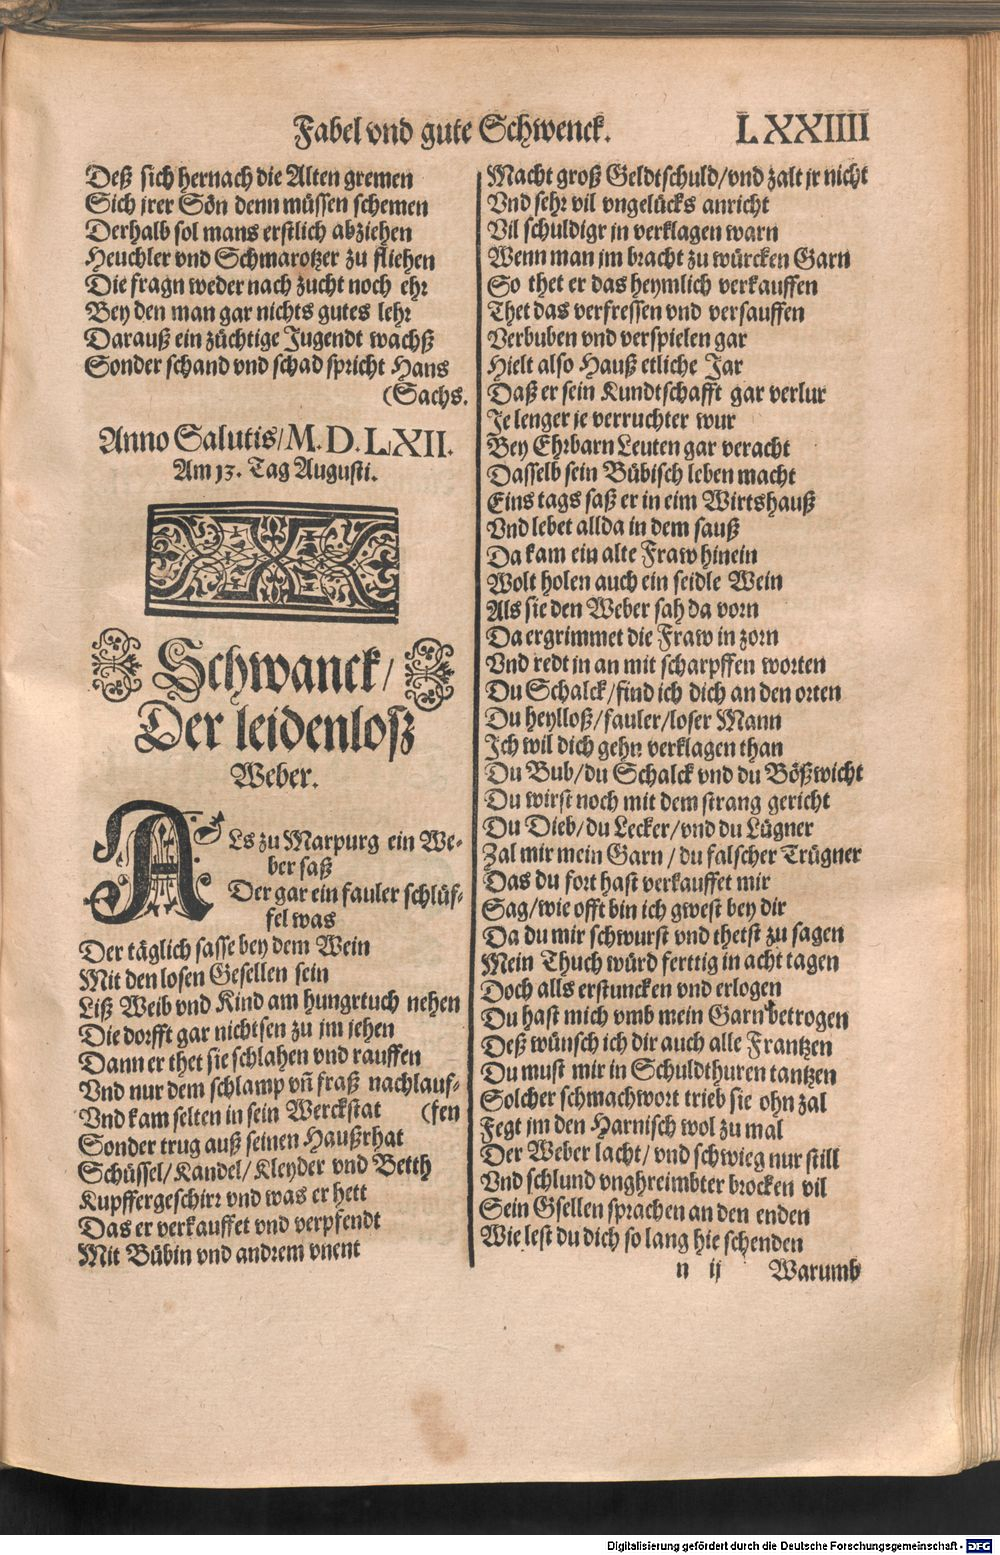 Fabel vnd gute Schwenck. LXXIIII
Deß sich hernach die Alten gremen
Sich jrer Sön denn müssen schemen
Derhalb sol mans erstlich abziehen
Heuchler vnd Schmarotzer zu fliehen
Die fragn weder nach zucht noch ehr
Bey den man gar nichts gutes lehr
Darauß ein züchtige Jugendt wachß
Sonder schand vnd schad spricht Hans
(Sachs.
Anno Salutis/M.D.LXII.
Am 13. Tag Augusti.
Schwanck/
Der leidenloß
Weber.
ALs zu Marpurg ein We-
ber saß
Der gar ein fauler schlüf-
fel was
Der täglich sasse bey dem Wein
Mit den losen Gesellen sein
Liß Weib vnd Kind am hungrtuch nehen
Die dorfft gar nichtsen zu jm jehen
Dann er thet sie schlahen vnd rauffen
Vnd nur dem schlamp vñ fraß nachlauf-
Vnd kam selten in sein Werckstat (fen
Sonder trug auß seinen Haußrhat
Schüssel/Kandel/Kleyder vnd Betth
Kupffergeschirr vnd was er hett
Das er verkauffet vnd verpfendt
Mit Bübin vnd andrem vnent
Macht groß Geldtschuld/vnd zalt jr nicht
Vnd sehr vil vngelücks anricht
Vil schuldigr jn verklagen warn
Wenn man jm bracht zu würcken Garn
So thet er das heymlich verkauffen
Thet das verfressen vnd versauffen
Verbuben vnd verspielen gar
Hielt also Hauß etliche Jar
Daß er sein Kundtschafft gar verlur
Je lenger je verruchter wur
Bey Ehrbarn Leuten gar veracht
Dasselb sein Bübisch leben macht
Eins tags saß er in eim Wirtshauß
Vnd lebet allda in dem sauß
Da kam ein alte Fraw hinein
Wolt holen auch ein seidle Wein
Als sie den Weber sah da vorn
Da ergrimmet die Fraw in zorn
Vnd redt in an mit scharpffen worten
Du Schalck/find ich dich an den orten
Du heylloß/fauler/loser Mann
Ich wil dich gehn verklagen than
Du Bub/du Schalck vnd du Bößwicht
Du wirst noch mit dem strang gericht
Du Dieb/du Lecker/vnd du Lügner
Zal mir mein Garn/du falscher Trügner
Das du fort hast verkauffet mir
Sag/wie offt bin ich gwest bey dir
Da du mir schwurst vnd thetst zu sagen
Mein Thuch würd ferttig in acht tagen
Doch alls erstuncken vnd erlogen
Du hast mich vmb mein Garn betrogen
Deß wünsch ich dir auch alle Frantzen
Du must mir in Schuldthuren tantzen
Solcher schmachwort trieb sie ohn zal
Fegt jm den Harnisch wol zu mal
Der Weber lacht/vnd schwieg nur still
Vnd schlund vnghreimbter brocken vil
Sein Gsellen sprachen an den enden
Wie lest du dich so lang hie schenden
n ij Warumb
Digitalisierung gefördert durch die Deutsche Forschungsgemeinschaft - DFG